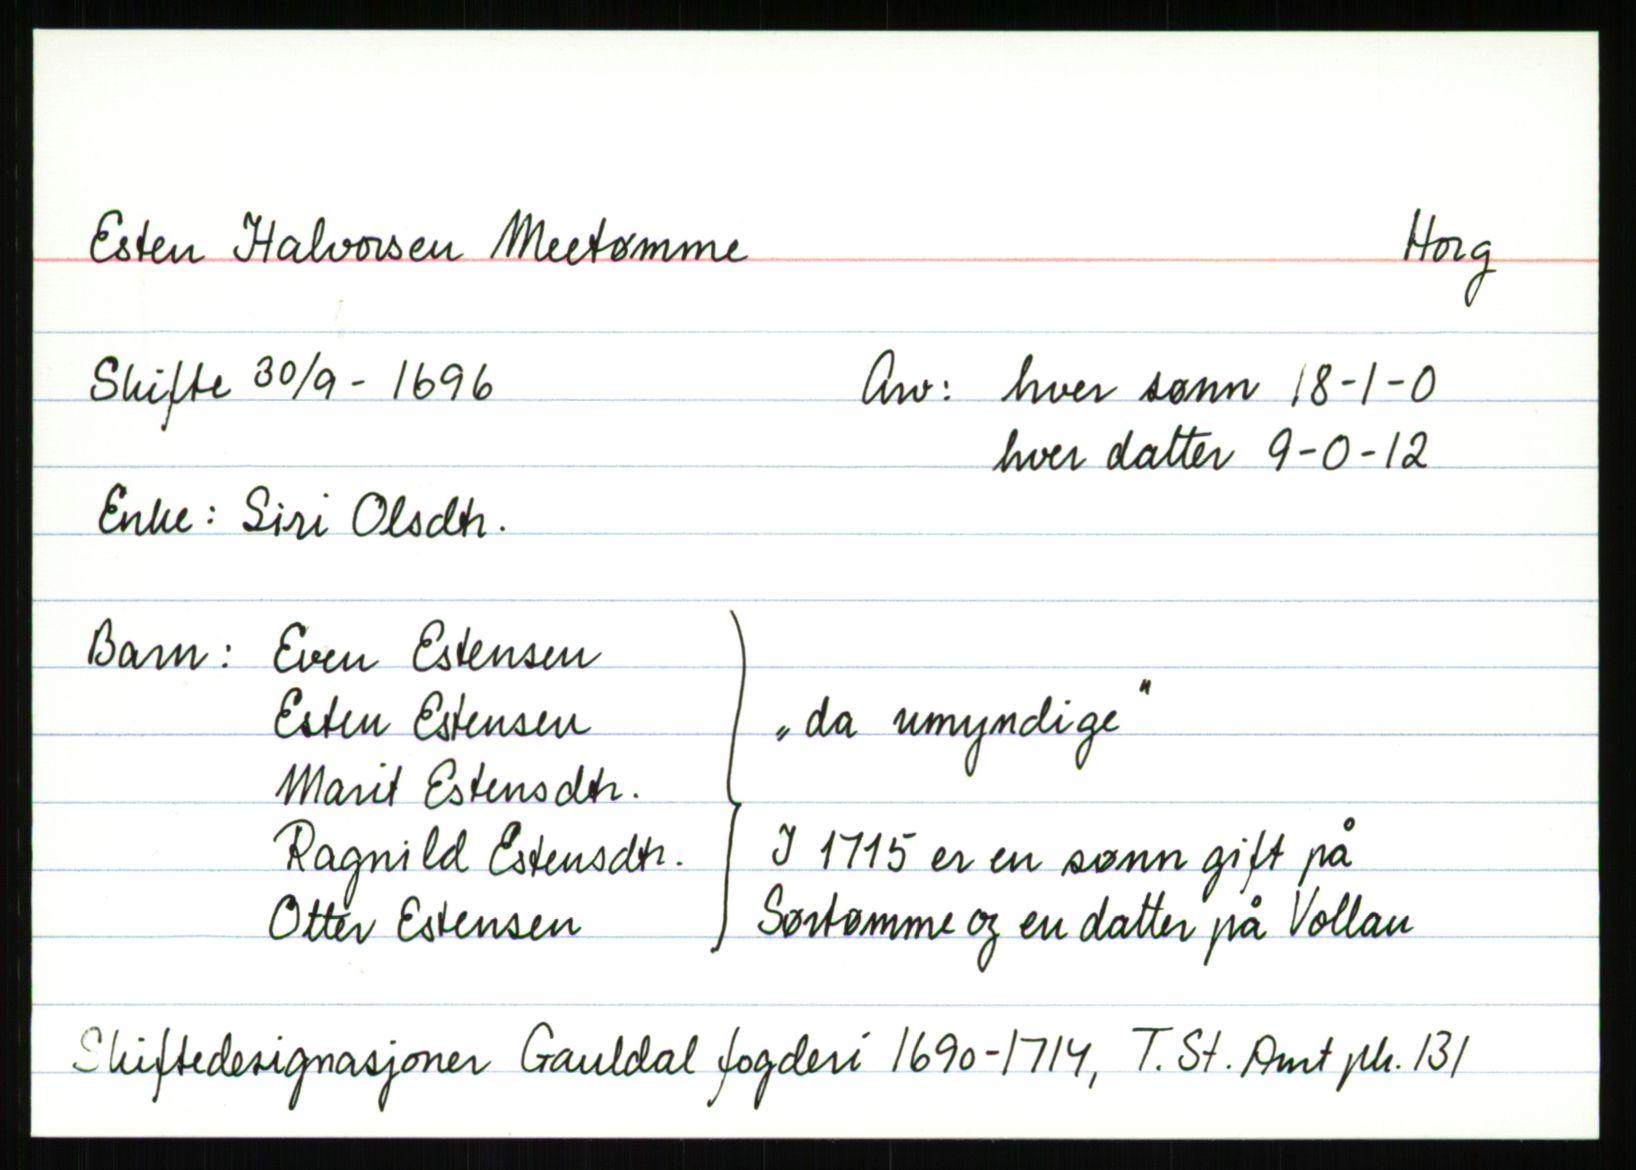 Esten Halvorsen Meetømme Horg
Skifte 30/9 - 1696 Arv: hver sønn 18-1-0
hver datter 9-0-12
Enke: Siri Olsdtr.
Barn: Even Estensen
Esten Estensen „da umyndige"
Marit Estensdtr.
Ragnild Estensdtr. I 1715 er en sønn gift på
Otter Estensen Sørtømme og en datter på Vollan
Skiftedesignasjoner Gauldal fogderi 1690-1714, T. St. Amt pk. 131